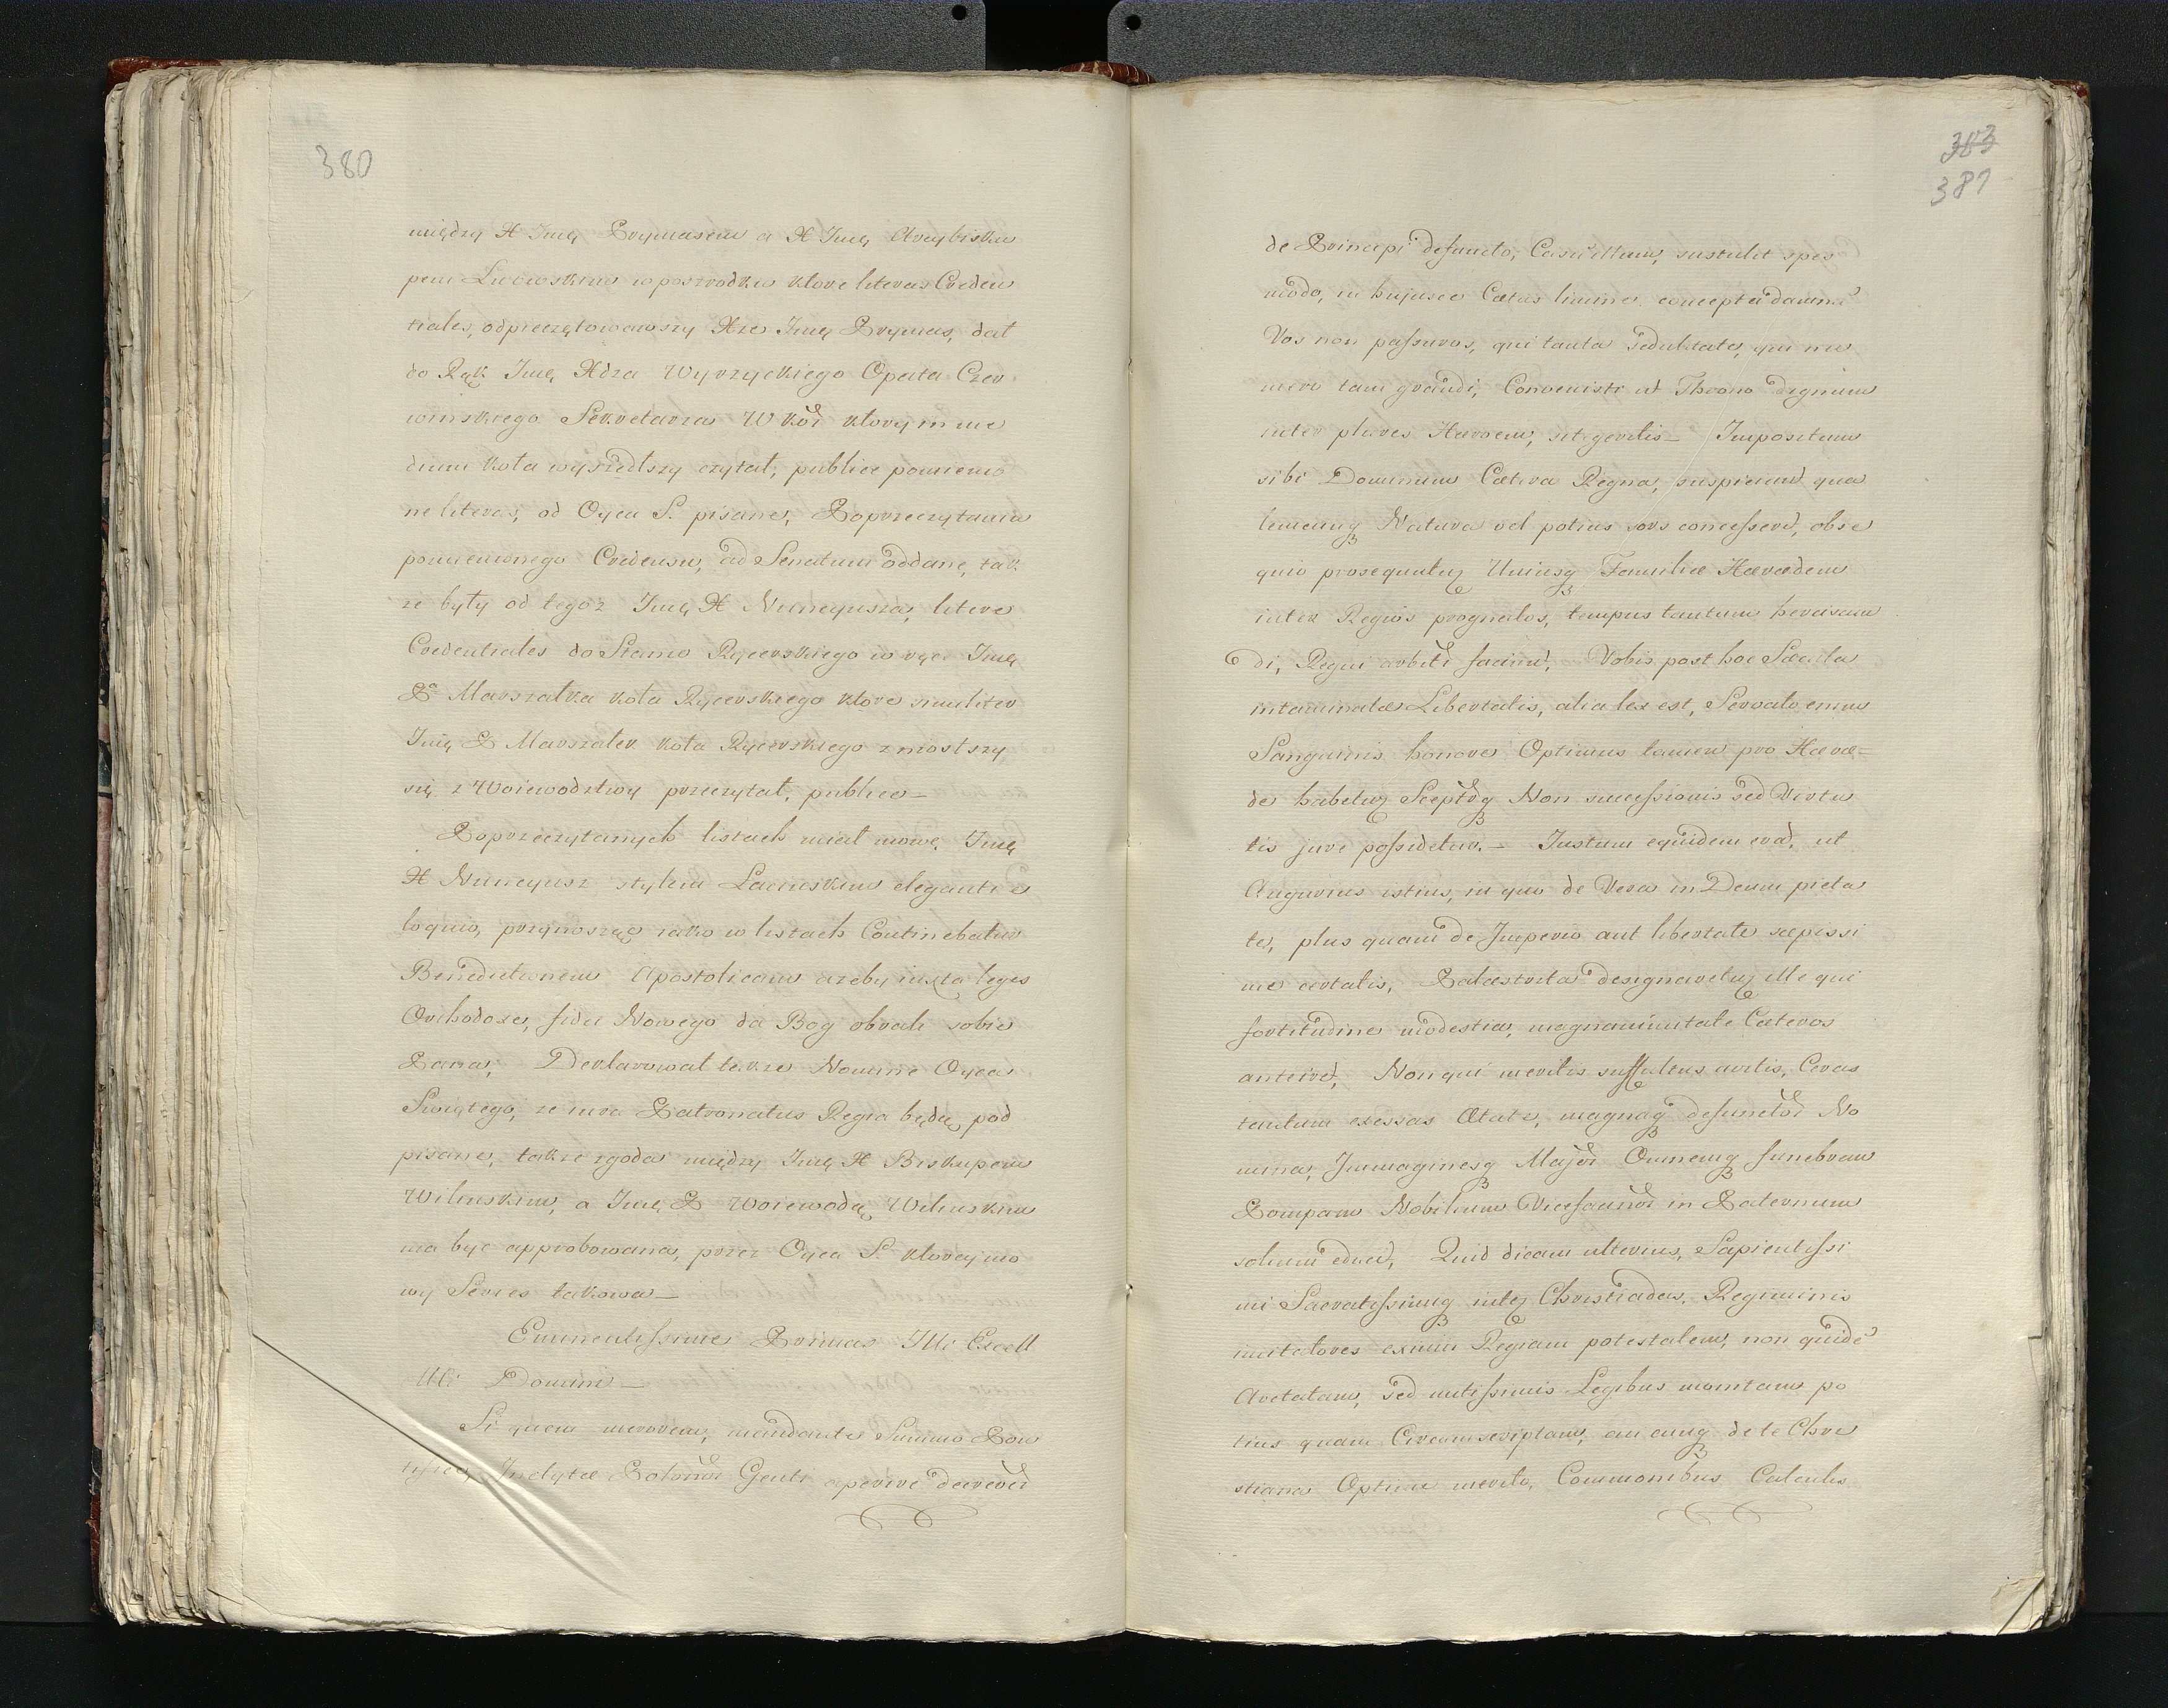 380
między X Jmę Prymasem a X Jmę Arcybisku
pem Lwowskim w poszrodku ktore literas Creden
tiales, odpieczętowawszy Xze Jmę Prymas, dał
do Rąk Jmę Xdza Wyrzyckiego Opata Czer
winskiego Sekretarza W Kor ktory in me
dium koła wyszedłszy czytał, publice pomienio
ne literas, od Oyca S. pisane, Po przeczytaniu
pomienionego Credensu, ad Senatum oddane, tak
ze były od tegoz Jmę X Nuncyusza, litere
Credentiales do Stanu Rycerskiego w ręce Jmę
Pa Marszałka koła Rycerskiego ktore similiter
Jmę P Marszałek koła Rycerskiego zniosłszy
się z Woiewodztwy przeczytał, publice
Po przeczytanych listach miał mowę Jmę
X Nuncyusz stylem Lacinskim eleganti e
loquio, przynosząc iako w listach Continebatur
Benedictionem Apostolicam azeby iuxta leges
Orthodoxe, fidei Nowego da Bog obrali sobie
Pana, Deklarował takze Nomine Oyca
Swiętego, ze iura Patronatus Regia będą pod
pisane, takze zgoda między Jmę X Biskupem
Wilenskim, a Jmę P Woiewodą Wilenskim
ma byc approbowana, przez Oyca S. ktorey mo
wy Series takowa
Eminentissime Primas Illi Excell
Illi Domini
Si quem merorem, mandante Summo Pon
tifice, Inclytæ Polonor Genti aperire decreveram
383
381
de Principi defuncto, Casu illum, sustulit spes
modo, in hujusce Cætus limine concepta damna
Vos non passuros, qui tanta sedulitate, qui nu
mero tam grandi, Convenistis ut Throno dignum
inter plures Heroem, seligeritis Impositum
sibi Dominum Cætera Regna, suspiciunt qua
lemcunq Natura vel potius sors concesserit, obse
quio prosequuntur Uniusq Familiæ Hæredem
inter Regios prognatos, tempus tantum
di, Regni arbitri faciunt, Vobis post hoc Sæcula
intaminatæ Libertatis, alia lex est, Servato enim
Sanguinis honore Optimus tamen pro Hære=
de habetur Sceptrq Non successionis sed Virtu
tis jure possidetur. Justum equidem erat, ut
Augurius istius, in quo de Vera in Deum pieta
te, plus quam de Imperio aut libertate sæpissi
me certatis, Palæstrita designaretur ille qui
fortitudine modestia, magnanimitate Cæteros
anteiret, Non qui meritis suffultus avitis, Ceras
tantum exessas Ætate, magnaq defunctor No
mina, Immaginesq Major Omnemq funebram
Pompam Nobilium Vicesannor in Paternum
solium educit, Quid dicam ulterius, Sapientissi
mi Sacratissimiq inter Christiadas, Regiminis
imitatores eximii Regiam potestatem, non quide
Arctatam, sed mitissimis Legibus munitam po
tius quam Circumscriptam, cuicunq de te Chri
stiana Optime merito, Communibus Calculis